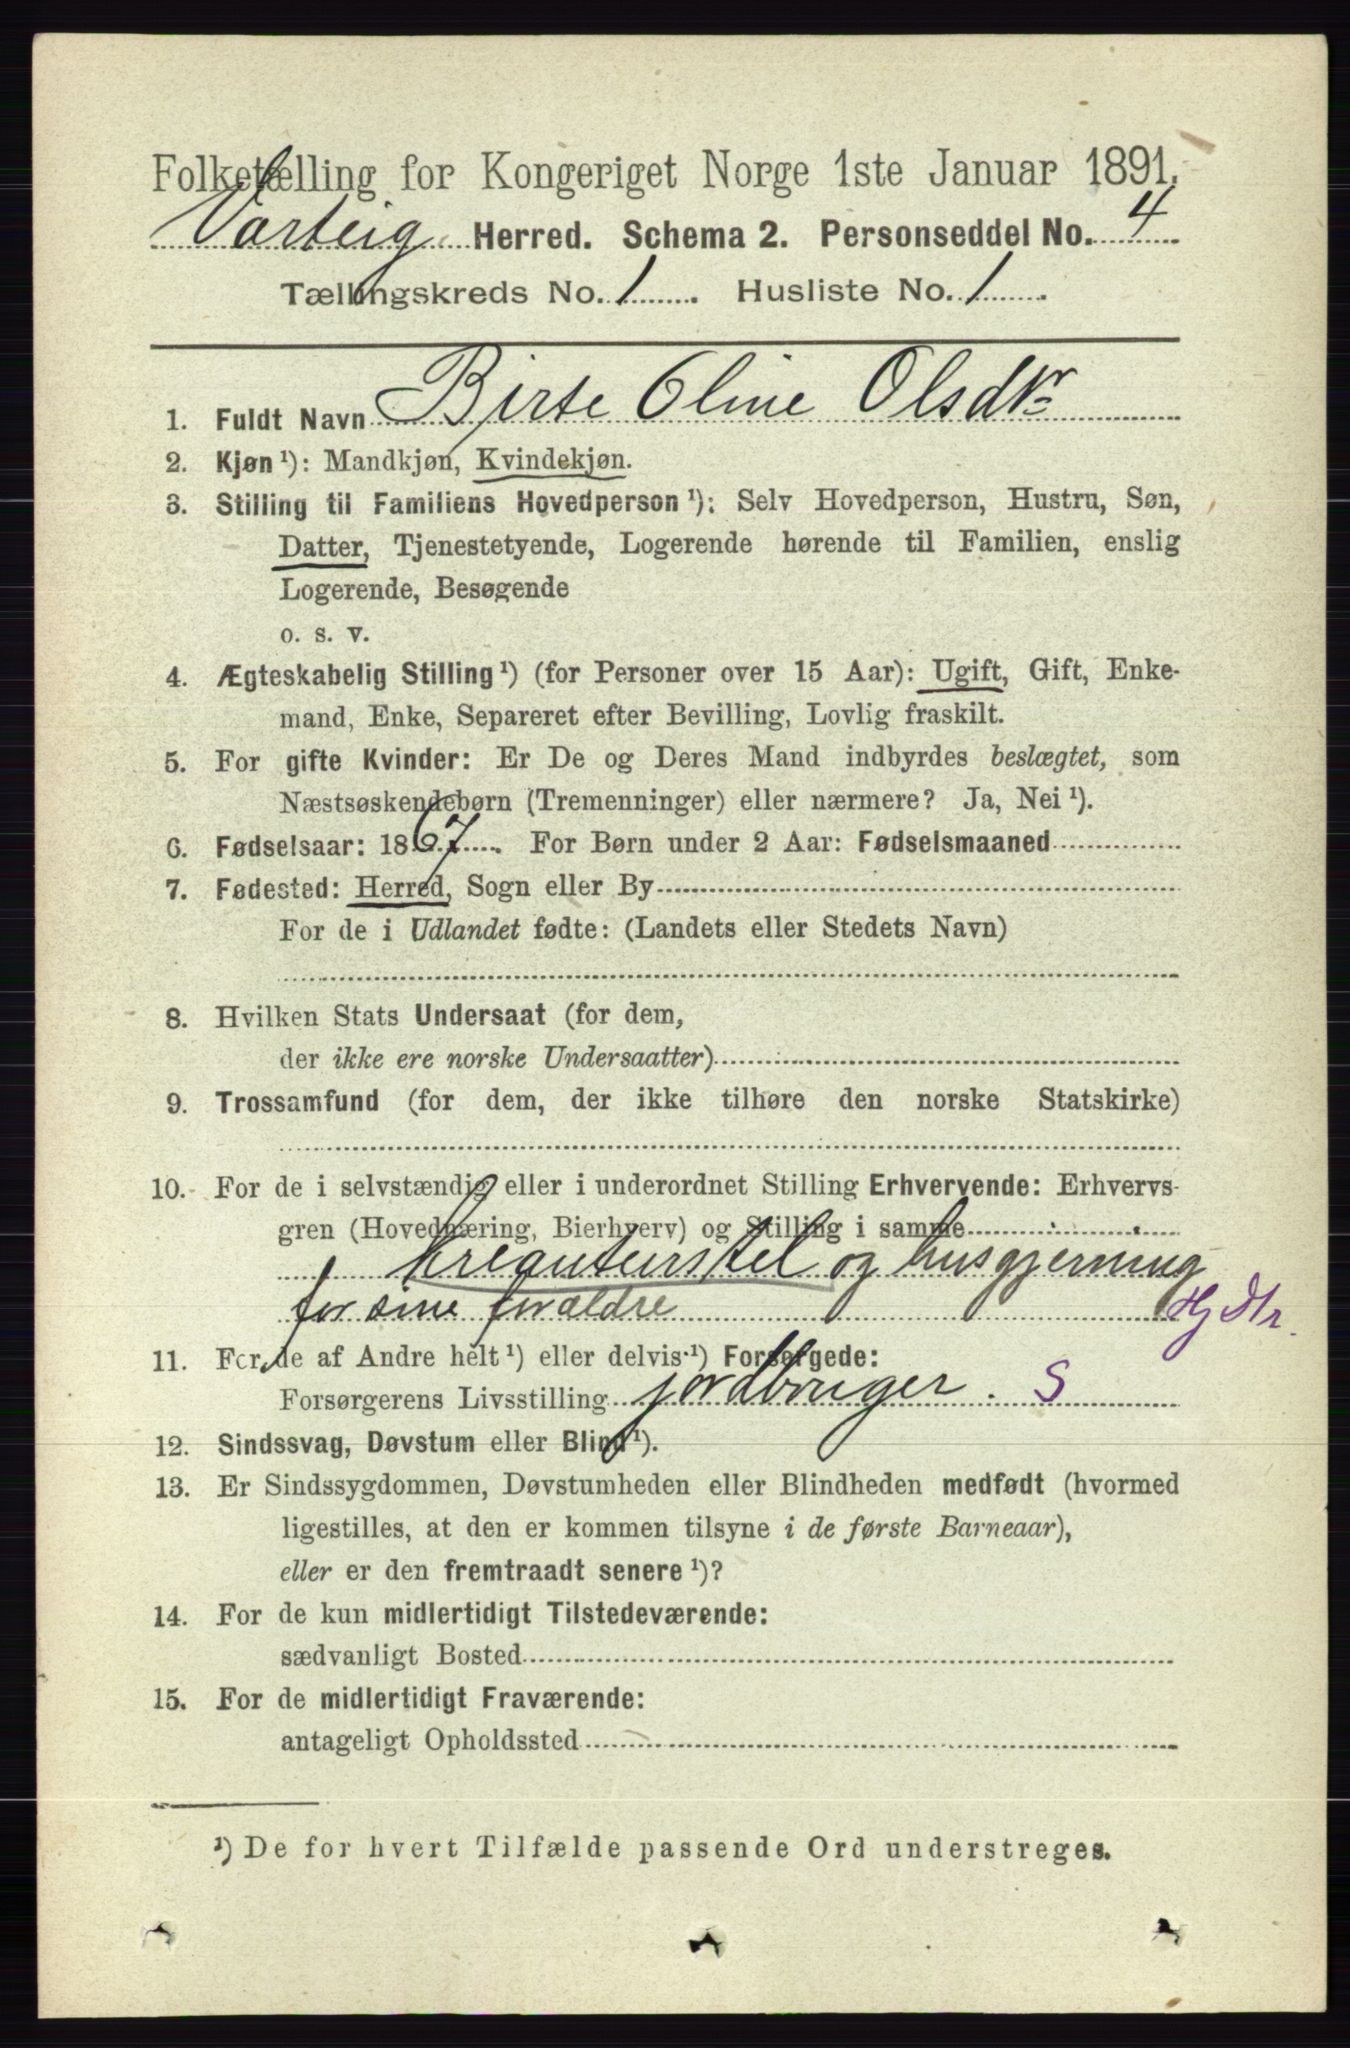 Folketælling for Kongeriget Norge 1ste Januar 1891.
Varteig Herred. Schema 2. Personseddel No. 4
Tællingskreds No. 1 Husliste No. 1
1. Fuldt Navn Birte Oline Olsdtr
2. Kjøn ¹): Mandkjøn, Kvindekjøn.
3. Stilling til Familiens Hovedperson ¹): Selv Hovedperson, Hustru, Søn,
Datter, Tjenestetyende, Logerende hørende til Familien, enslig
Logerende, Besøgende
o. s. v.
4. Ægteskabelig Stilling ¹) (for Personer over 15 Aar): Ugift, Gift, Enke-
mand, Enke, Separeret efter Bevilling, Lovlig fraskilt.
5. For gifte Kvinder: Er De og Deres Mand indbyrdes beslægtet, som
Næstsøskendebørn (Tremenninger) eller nærmere? Ja, Nei ¹).
6. Fødselsaar: 1867. For Børn under 2 Aar: Fødselsmaaned
7. Fødested: Herred, Sogn eller By
For de i Udlandet fødte: (Landets eller Stedets Navn)
8. Hvilken Stats Undersaat (for dem,
der ikke ere norske Undersaatter)
9. Trossamfund (for dem, der ikke tilhøre den norske Statskirke)
10. For de i selvstændig eller i underordnet Stilling Erhvervende: Erhvervs-
gren (Hovednæring, Bierhverv) og Stilling i samme
kreaturstel og husgjerning
for sine forældre Hj Dtr.
11. For de af Andre helt ¹) eller delvis ¹) Forsørgede:
Forsørgerens Livsstilling jordbruger. S
12. Sindssvag, Døvstum eller Blind ¹).
13. Er Sindssygdommen, Døvstumheden eller Blindheden medfødt (hvormed
ligestilles, at den er kommen tilsyne i de første Barneaar),
eller er den fremtraadt senere ¹)?
14. For de kun midlertidigt Tilstedeværende:
sædvanligt Bosted
15. For de midlertidigt Fraværende:
antageligt Opholdssted
¹) De for hvert Tilfælde passende Ord understreges.